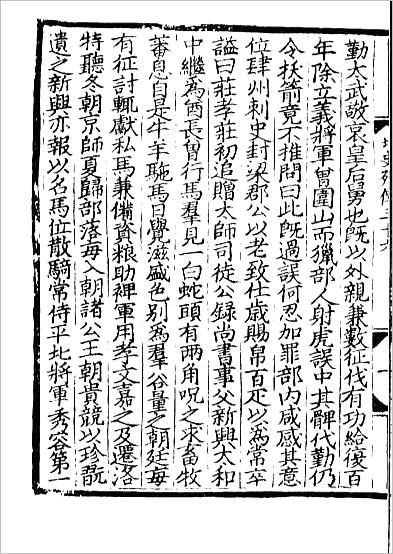 勤太武敬哀皇后舅也旣以外親兼數征伐有功給復百
年除立義將軍曾圍山而獵部人射虎誤中其髀代勤仍
令拔箭竟不推問曰此旣過誤何忍加罪部內咸感其意
位肆州刺史封梁郡公以老致仕歲賜帛百疋以爲常卒
謚曰莊孝莊初追贈太師司徒公錄尚書事父新興太和
中繼爲酋長曾行馬羣見一白蛇頭有兩角呪之求畜牧
蕃息自是牛羊駞馬日覺滋盛色別爲羣谷量之朝廷每
有征討輒獻私馬兼備資粮助裨軍用孝文嘉之及遷洛
特聽冬朝京師夏歸部落每入朝諸公王朝貴競以珍翫
遺之新興亦報以名馬位散騎常侍平北將軍秀容第一